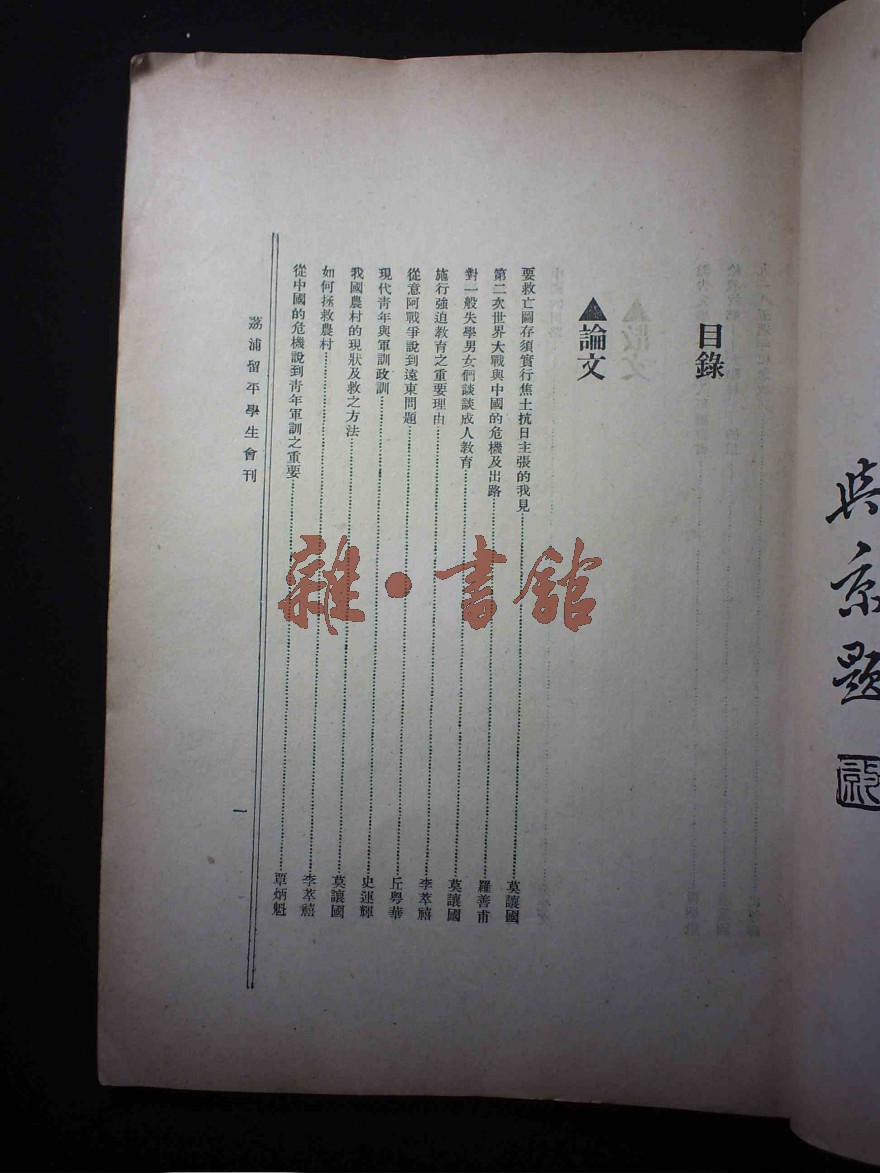 吳京題
目錄
▲論文
要救亡圖存須實行焦土抗日主張的我見……莫讓國
第二次世界大戰與中國的危機及出路……羅善甫
對一般失學男女們談談成人教育……莫讓國
施行強迫教育之重要理由……李萃禧
從意阿戰爭說到遠東問題……丘粵華
現代青年與軍訓政訓……史運輝
我國農村的現狀及救之方法……莫讓國
如何拯救農村……李萃禧
從中國的危機說到青年軍訓之重要……覃炳魁
荔浦留平學生會刊
一
雜·書館